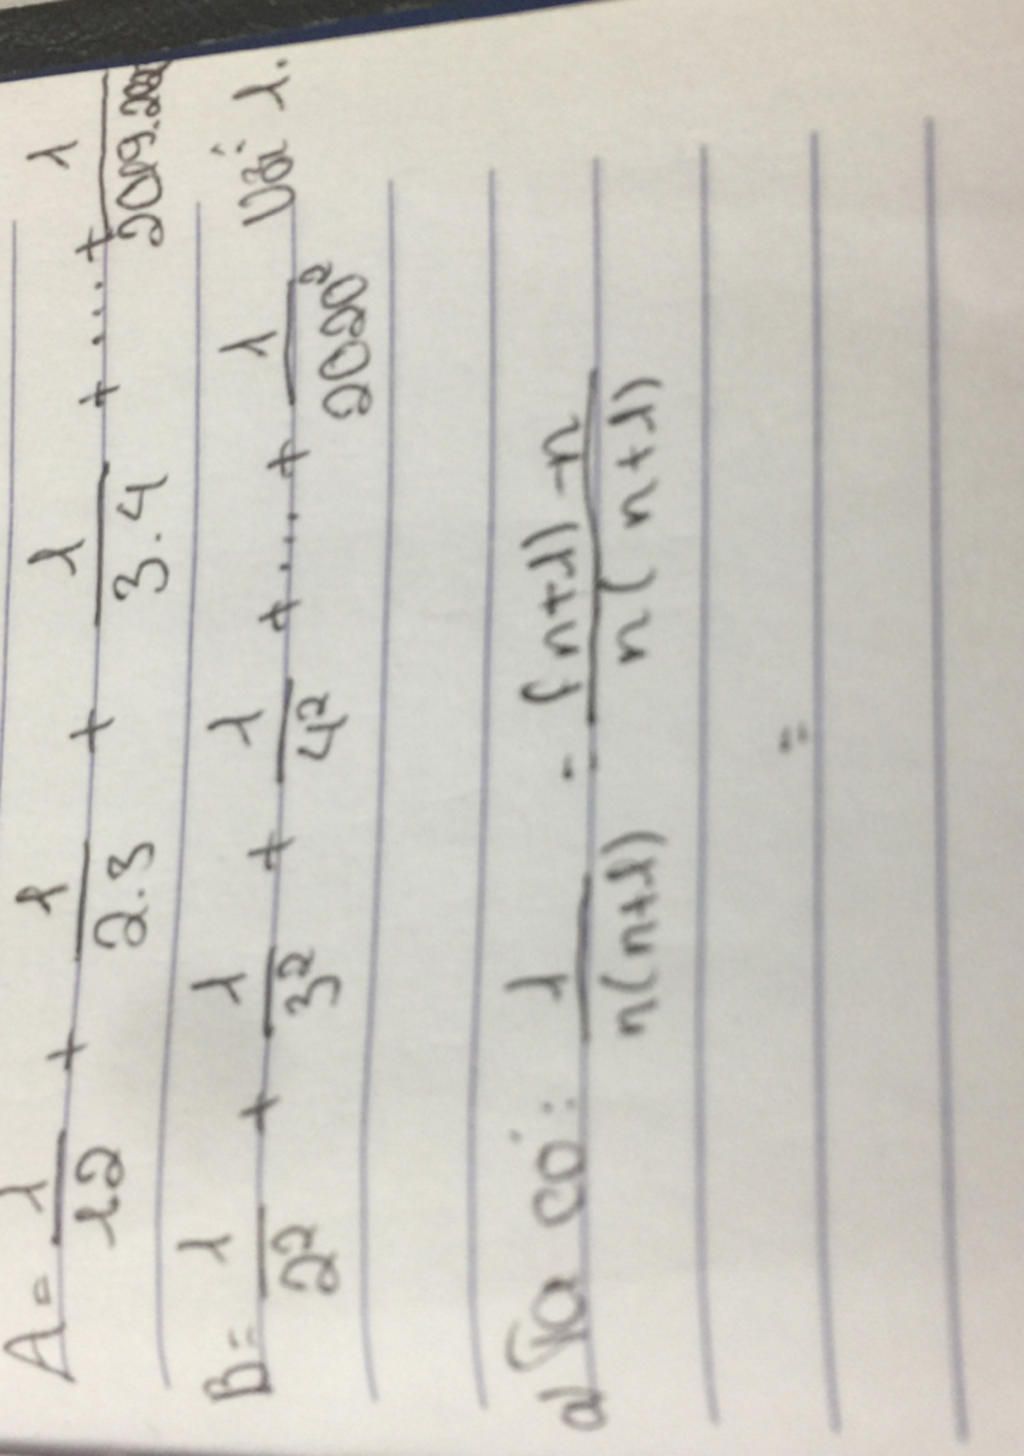 A = 1/1.2 + 1/2.3 + 1/3.4 + ... + 1/2019.2020
B = 1/2² + 1/3² + 1/4² + ... + 1/2020² với 1.
a) Ta có: 1/n(n+1) = (n+1)-n/n(n+1)
=